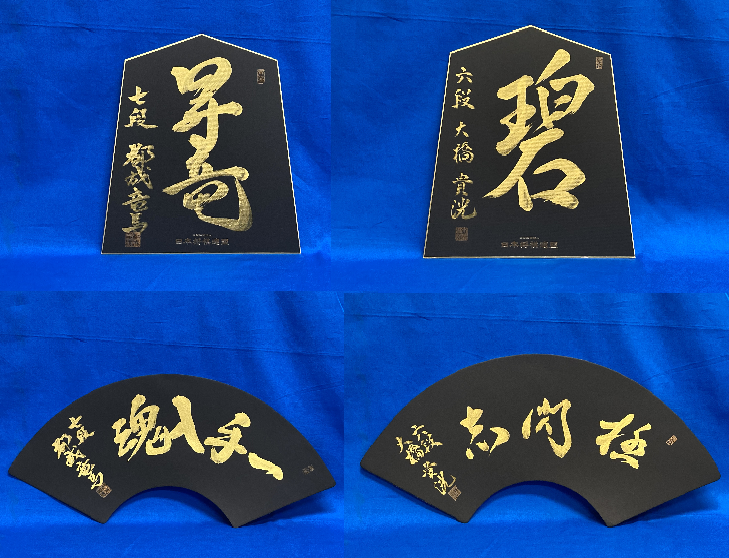 昇竜
七段 都成竜馬
日本将棋連盟
碧
六段 大橋貴洸
日本将棋連盟
一手入魂
七段 都成竜馬
志
六段 大橋貴洸